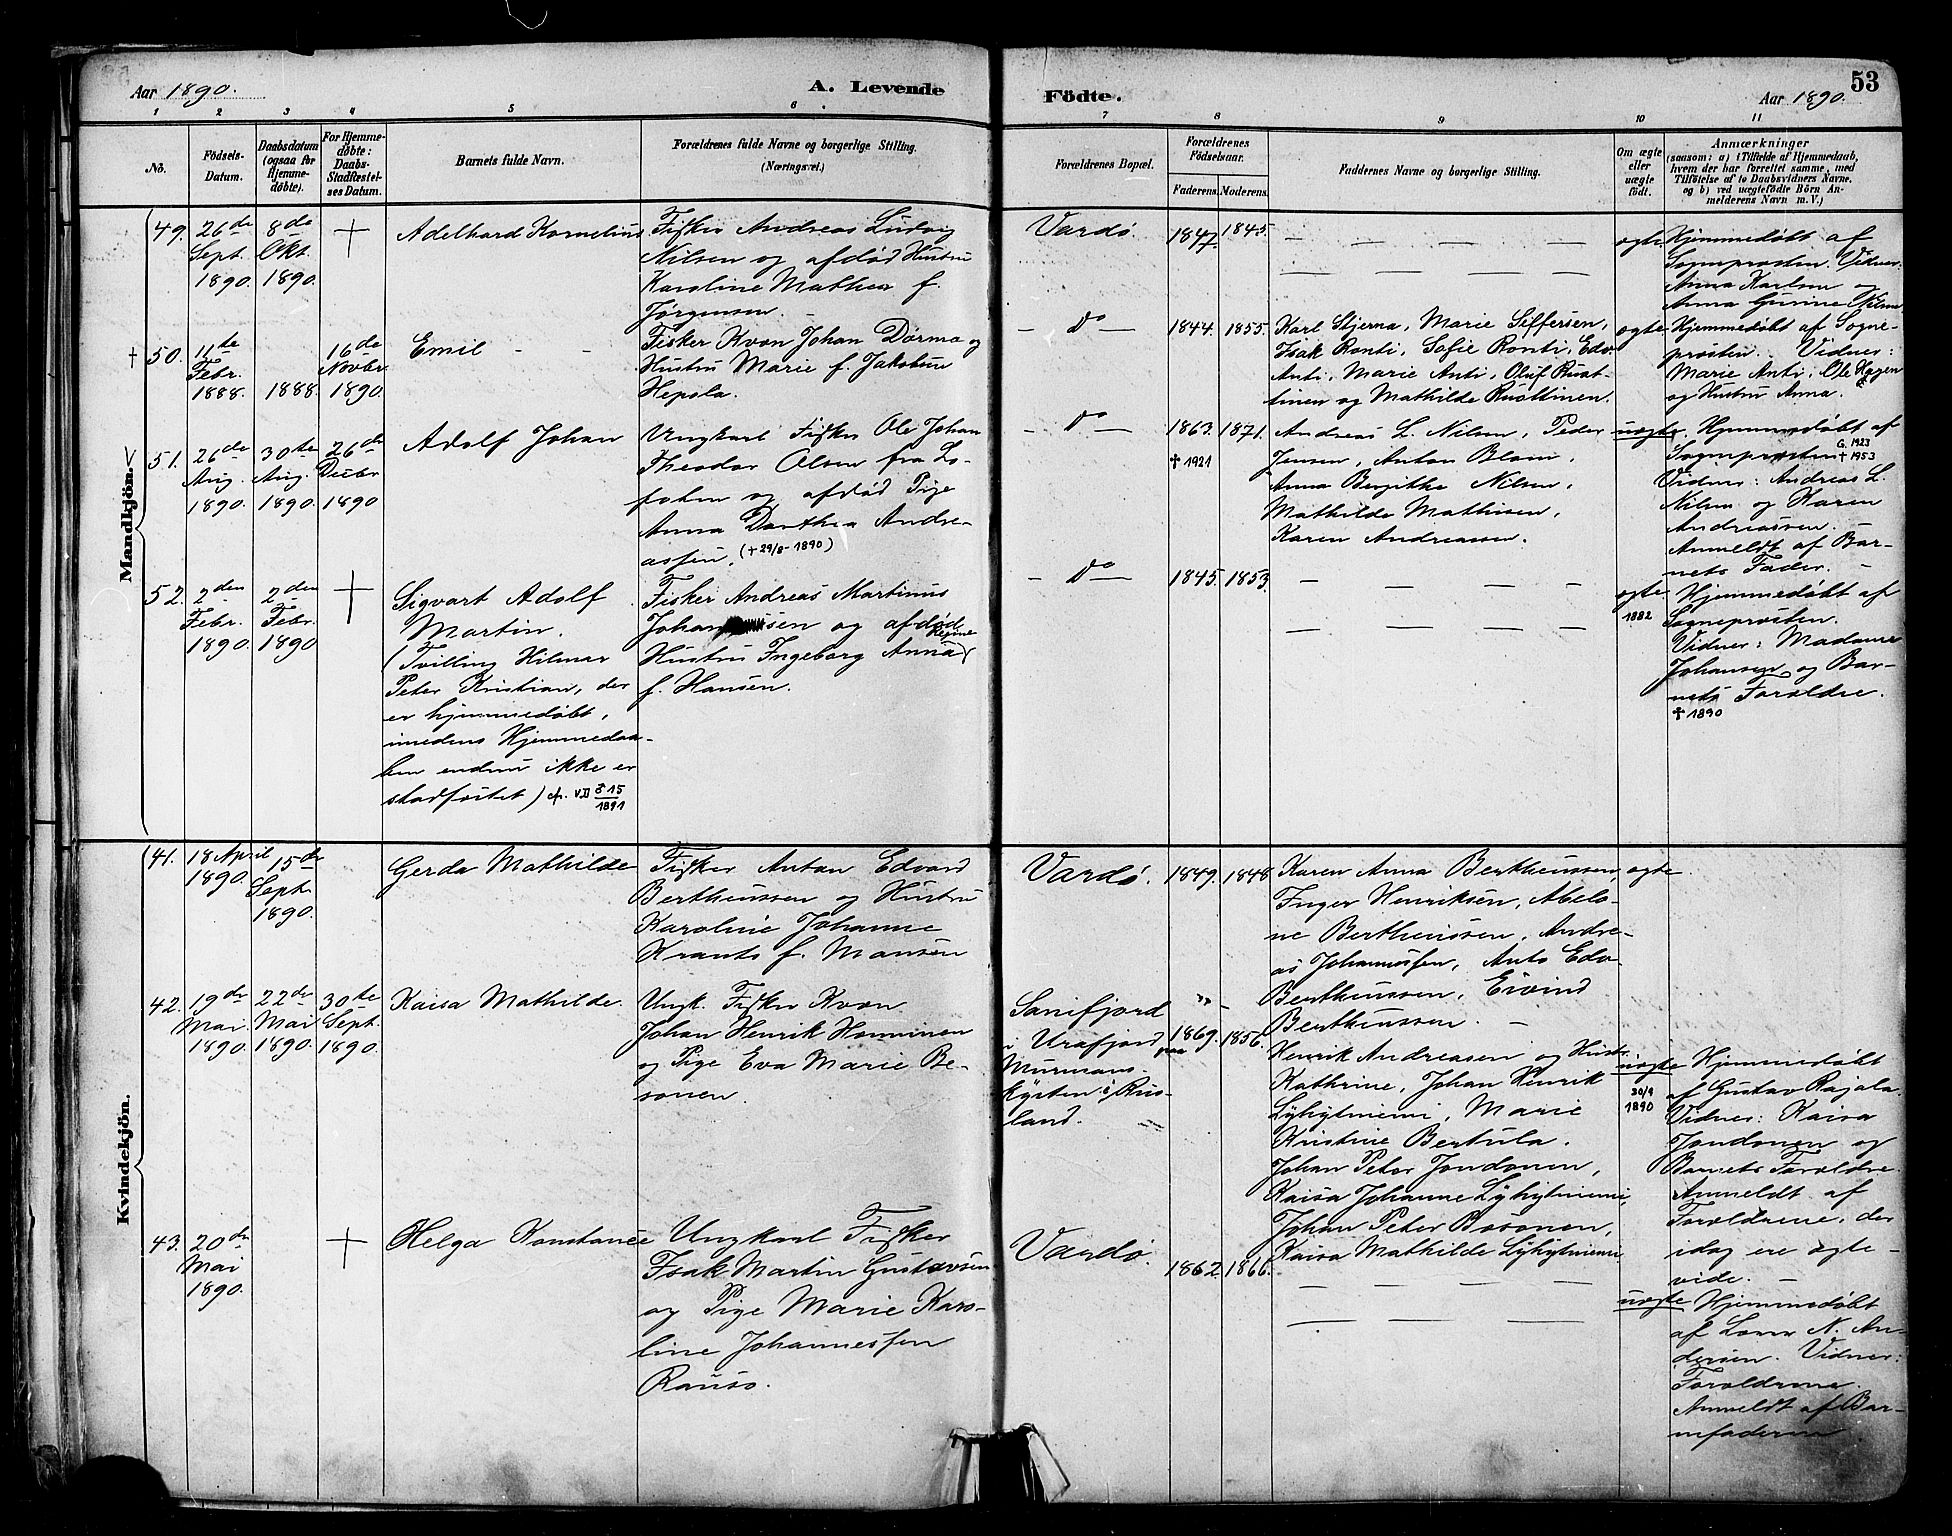 Aar 1890.
A. Levende
Födte.
53
Aar 1890.
1 2 3 4 5 6 7 8 9 10 11
No.
Födsels-
Datum.
Daabsdatum
(ogsaa for
Hjemme-
døbte).
For Hjemme-
døbte:
Daabs-
Stadfæstel-
ses Datum.
Barnets fulde Navn.
Forældrenes fulde Navne og borgerlige Stilling.
(Næringsvei.)
Forældrenes Bopæl.
Forældrenes
Födselsaar.
Faderens. Moderens.
Faddernes Navne og borgerlige Stilling.
Om ægte
eller
uægte
født.
Anmærkninger
(saasom: a) i Tilfælde af Hjemmedaab,
hvem der har forrettet samme, med
Tilføielse af to Daabsvidners Navne,
og b) ved uægtefødte Börn An-
melderens Navn m. V.)
Mandkjön.
49.
26de
Sept.
1890.
8de
Okt.
1890.
+
Adelhard Kornelius
Fisker Andreas Ludvig
Nilsen og afdød Hustru
Karoline Mathea f.
Jørgensen.
Vardø
1847. 1845.
ægte
Hjemmedøbt af
Sogneprosten. Vidner:
Anna Karlsen og
Anna Gurine Nilsen
† 50.
11te
Febr.
1888.
1888.
16de
Novbr.
1890.
Emil
Fisker Kvæn Johan Dørma og
Hustru Marie f. Jakobsen
Hepola.
- do -
1844. 1855.
Karl Stjerna, Marie Seffersen,
Isak Ronti, Sofie Ronti, Edv.
Anti, Marie Anti, Oluf Rust-
tinen og Mathilde Rusttinen.
ægte
Hjemmedøbt af Sogne-
prosten. Vidner:
Marie Anti, Ole Hagen
og Hustru Anna.
51.
26de
Aug.
1890.
30te
Aug.
1890.
26de
Decbr
1890
Adolf Johan
Ungkarl Fisker Ole Johan
Theodor Olsen fra Lo-
foten og afdød Pige
Anna Dorthea Andre-
assen. (+ 29/8-1890)
- do -
1863. 1871.
† 1921
Andreas L. Nilsen, Peder
Jensen, Anton Blom,
Anna Bergitte Nilsen,
Mathilde Mathisen,
Karen Andreassen.
uægte
Hjemmedøbt af
Sogneprosten G. 1923
† 1953
Vidner: Andreas L.
Nilsen og Karen
Andreassen.
Anmeldt af Bar-
nets Fader.
52.
2den
Febr.
1890.
2den
Febr.
1890
+
Sigvart Adolf
Martin.
(Tvilling Hilmar
Peter Kristian, der
er hjemmedøbt,
imedens Hjemmedaa-
ben endnu ikke er
stadfæstet) cfr. VII ♂15
1891
Fisker Andreas Martinus
Johansen og afdød
Hustru Ingeborg Anna Regine
f. Hansen.
- do -
1845. 1853.
ægte
1882
Hjemmedøbt af
Sogneprosten.
Vidner: Madame
Johansen og Bar-
nets Forældre.
† 1890
Kvindekjön.
41.
18 April
1890.
15de
Sept.
1890.
Gerda Mathilde
Fisker Anton Edvard
Bertheussen og Hustru
Karoline Johanne
Krants f. Mansen
Vardø.
1849. 1848
Karen Anna Bertheussen,
Inger Henriksen, Abelo-
ne Bertheussen, Andre-
as Johannessen, Anto Edv.
Bertheussen, Eivind
Bertheussen.
ægte
42.
19de
Mai
1890.
22de
Mai
1890.
30te
Sept.
1890.
Kaisa Mathilde
Ungk. Fisker Kvæn
Johan Henrik Honninen
og Pige Eva Marie Be-
sonen.
Sanifjord
i Urafjord paa
Murmans-
kysten i Rus-
land.
1869. 1856.
Henrik Andreasen og Hustr.
Kathrine, Johan Henrik
Lyhytniemi, Marie
Kristine Bertula,
Johan Peter Jondonen,
Kaisa Johanne Lyhytniemi,
Johan Peter Bosonen,
Kaisa Mathilde Lyhytniemi
uægte
30/9
1890
Hjemmedøbt
af Gustav Rajala.
Vidner: Kaisa
Jondonen og
Barnets Forældre.
Anmeldt af
Forældrene, der
idag ere ægte-
vide.
43.
20de
Mai
1890.
+
Helga Konstance
Ungkarl Fisker
Isak Martin Gustavsen
og Pige Marie Karo-
line Johannessen
Rauso.
Vardø.
1862. 1866.
uægte
Hjemmedøbt
af Lærer N. An-
dersen. Vidner:
Forældrene.
Anmeldt af Bar-
nefaderen.